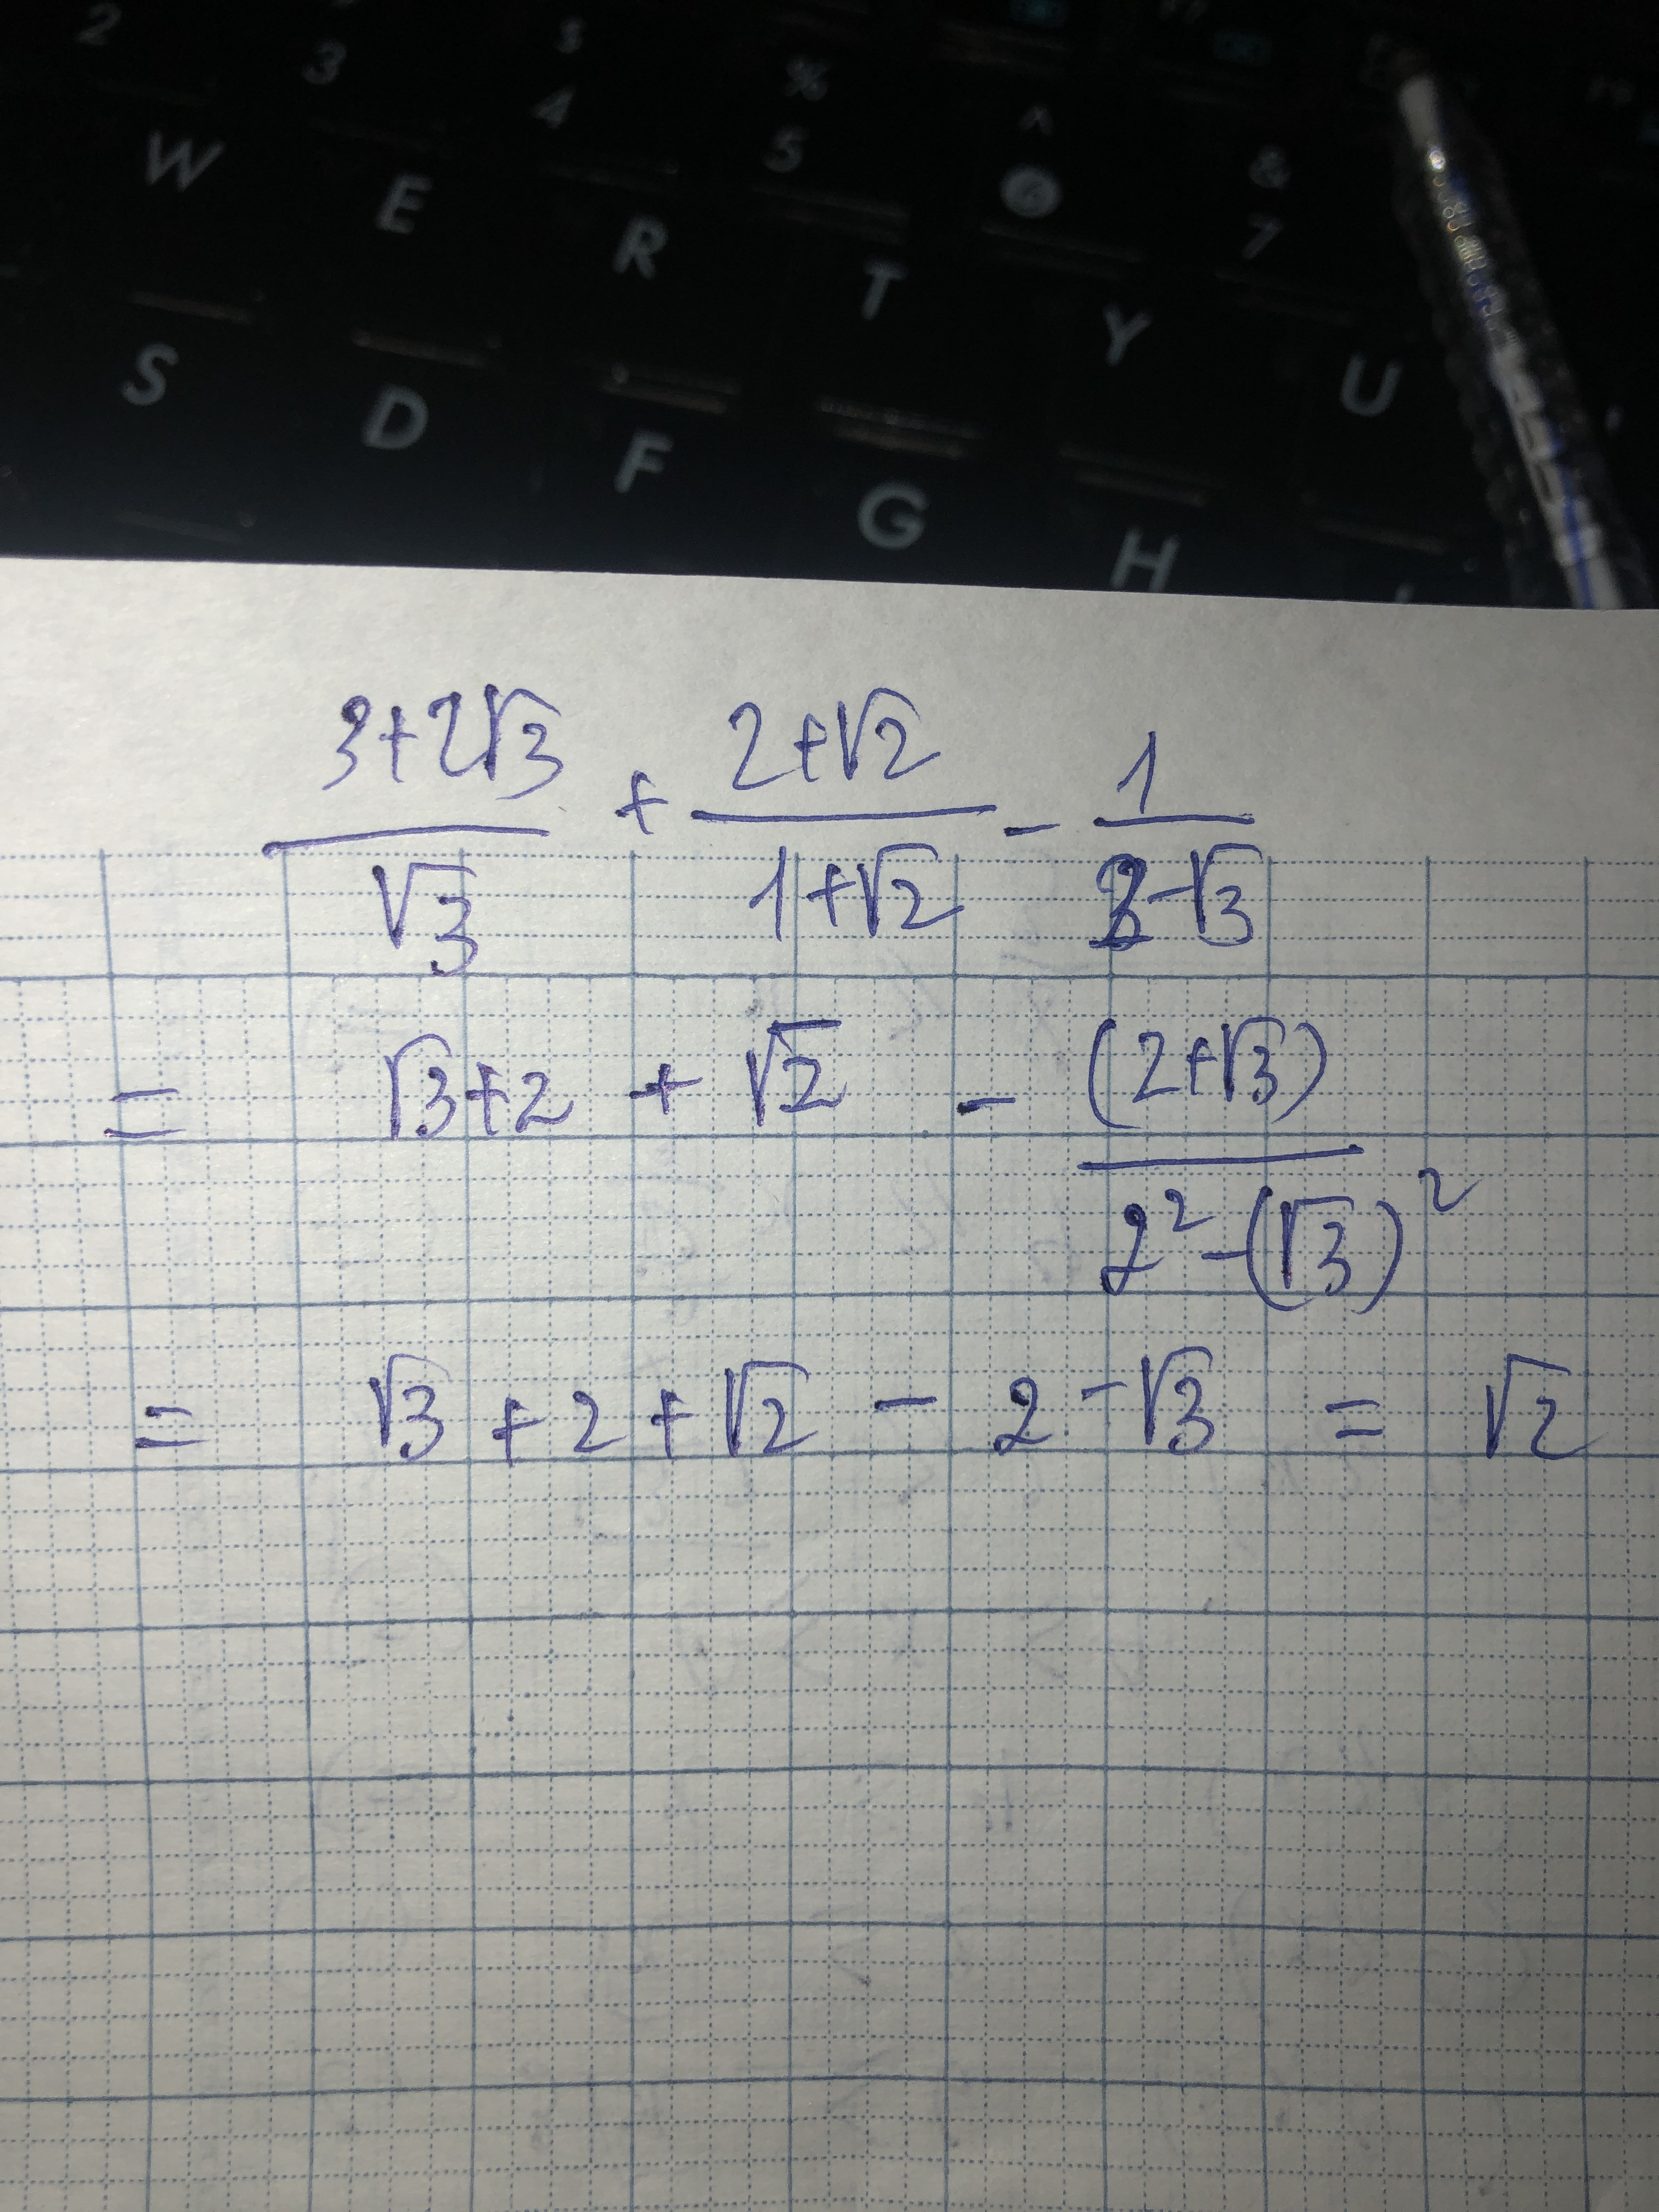 2 3 $ 4 % 5 ^ 6 & 7
W E R T Y U
S D F G H
(3+2√3)/√3 + (2+√2)/(1+√2) - 1/(2-√3)
= √3+2 + √2 - (2+√3)/(2²-(√3)²)
= √3 + 2 + √2 - 2 - √3 = √2